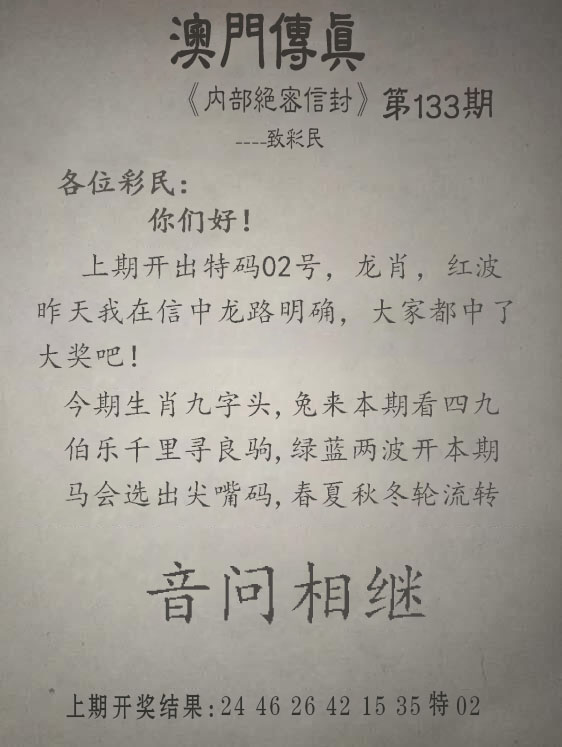 澳門傳真
《内部絕密信封》第133期
----致彩民
各位彩民：
你们好！
上期开出特码02号，龙肖，红波
昨天我在信中龙路明确，大家都中了
大奖吧！
今期生肖九字头,兔来本期看四九
伯乐千里寻良驹,绿蓝两波开本期
马会选出尖嘴码,春夏秋冬轮流转
音问相继
上期开奖结果:24 46 26 42 15 35 特 02